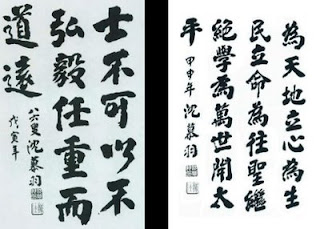 士不可以不
弘毅任重而
道遠
八六叟沈慕羽
戊寅年
為天地立心為生
民立命為往聖繼
絕學為萬世開太
平
甲申年沈慕羽